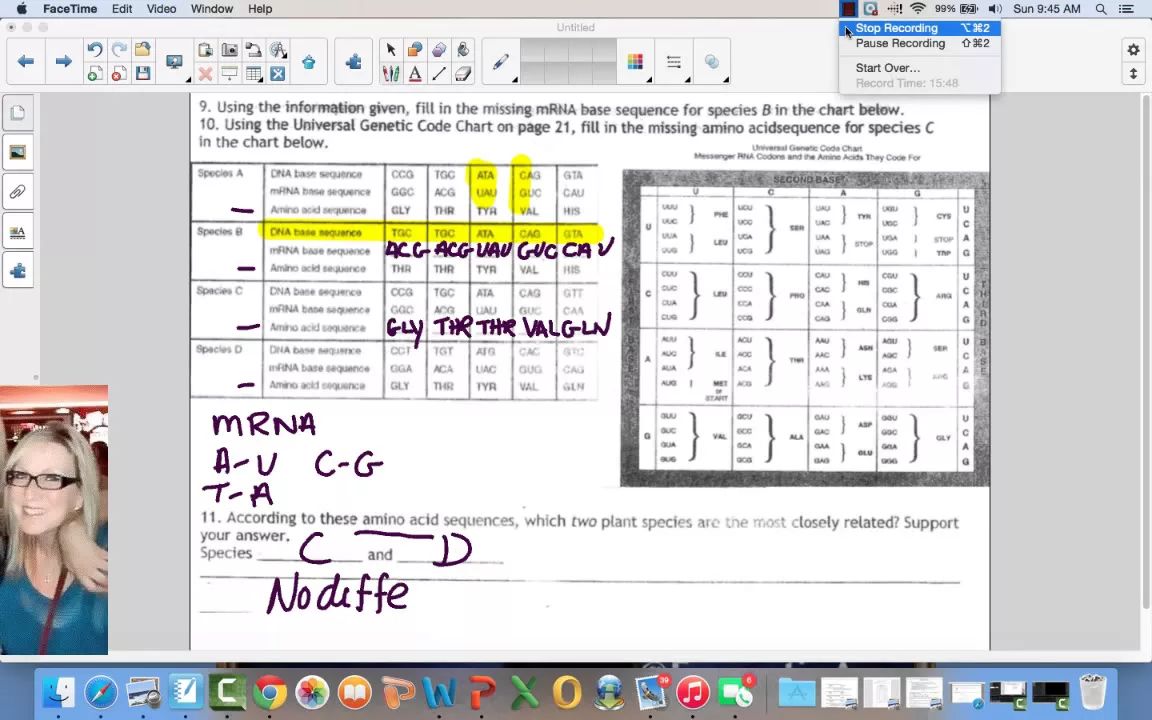 FaceTime Edit Video Window Help 99% Sun 9:45 AM
Stop Recording ⌥⌘2
Pause Recording ⇧⌘2
Start Over...
Record Time: 15:48
Untitled
9. Using the information given, fill in the missing mRNA base sequence for species B in the chart below.
10. Using the Universal Genetic Code Chart on page 21, fill in the missing amino acidsequence for species C
in the chart below.
Species A DNA base sequence CCG TGC ATA CAG GTA
mRNA base sequence GGC ACG UAU GUC CAU
Amino acid sequence GLY THR TYR VAL HIS
Species B DNA base sequence TGC TGC ATA CAG GTA
mRNA base sequence ACG ACG UAU GUC CAU
Amino acid sequence THR THR TYR VAL HIS
Species C DNA base sequence CCG TGC ATA CAG GTT
mRNA base sequence GGC ACG UAU GUC CAA
Amino acid sequence GLY THR THR VAL GLN
Species D DNA base sequence CCT TGT ATG CAC GTC
mRNA base sequence GGA ACA UAC GUG CAG
Amino acid sequence GLY THR TYR VAL GLN
Universal Genetic Code Chart
Messenger RNA Codons and the Amino Acids They Code For
SECOND BASE
U C A G
U UUU UUC PHE UUA UUG LEU UCU UCC UCA UCG SER UAU UAC TYR UAA UAG STOP UGU UGC CYS UGA STOP UGG TRP U C A G
C CUU CUC CUA CUG LEU CCU CCC CCA CCG PRO CAU CAC HIS CAA CAG GLN CGU CGC CGA CGG ARG U C A G
A AUU AUC AUA ILE AUG MET or START ACU ACC ACA ACG THR AAU AAC ASN AAA AAG LYS AGU AGC SER AGA AGG ARG U C A G
G GUU GUC GUA GUG VAL GCU GCC GCA GCG ALA GAU GAC ASP GAA GAG GLU GGU GGC GGA GGG GLY U C A G
THIRD BASE
mRNA
A-U C-G
T-A
11. According to these amino acid sequences, which two plant species are the most closely related? Support
your answer.
Species C and D
No diffe
39
6